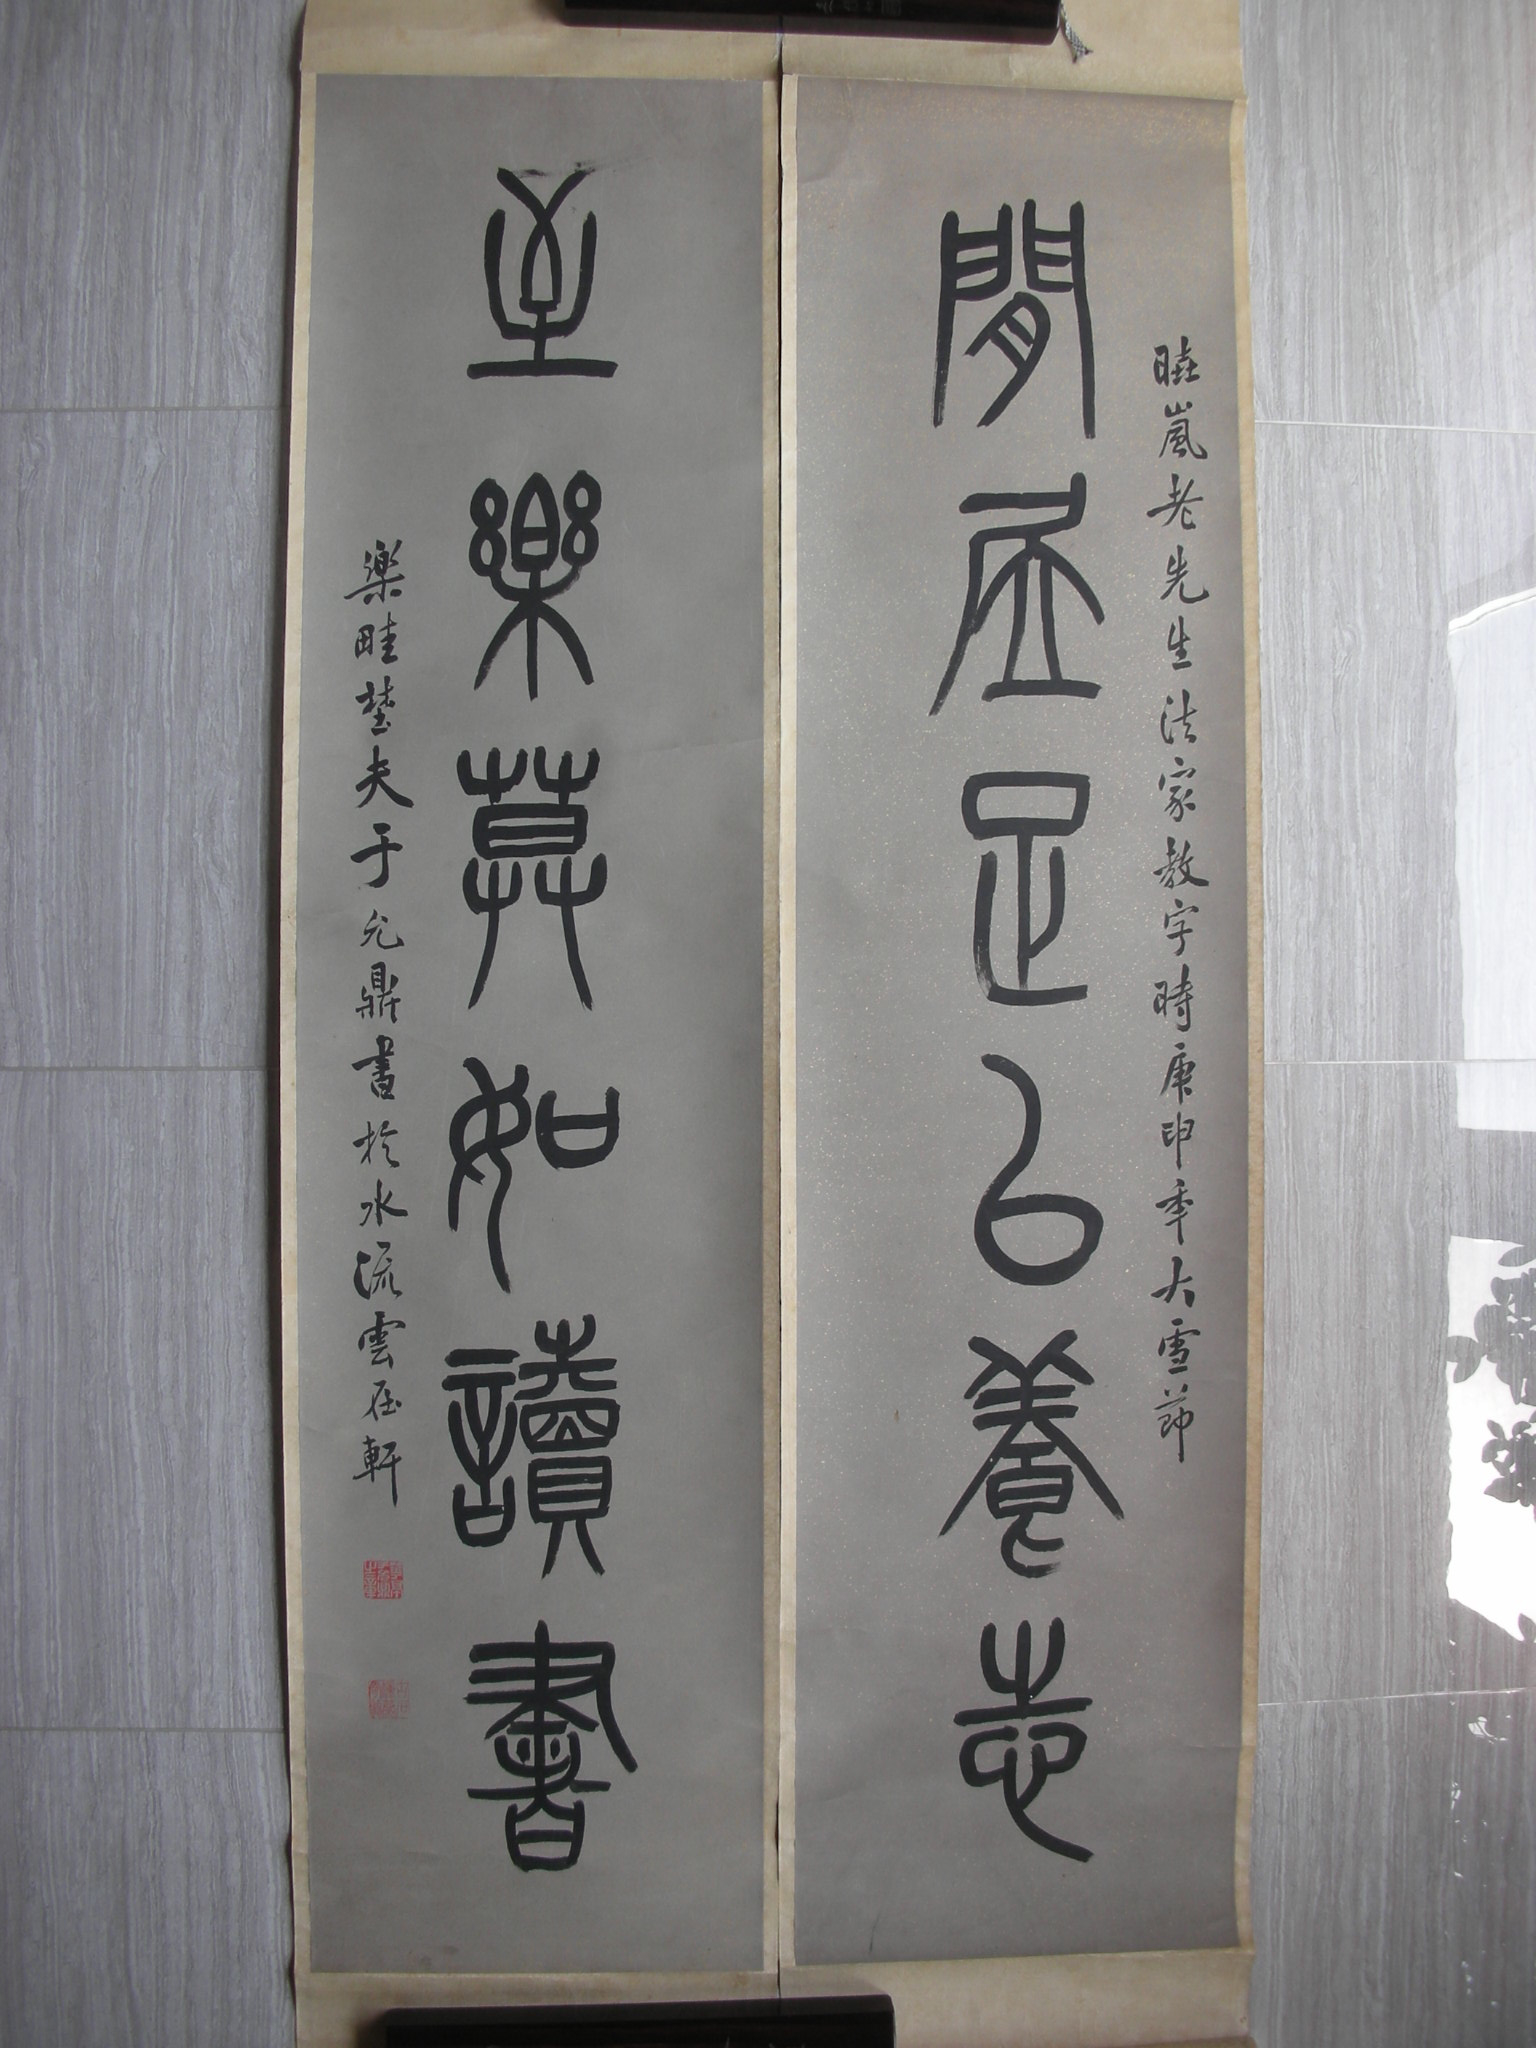 閒居足以養志
曉嵐老先生法家教字時庚申年大雪節
至樂莫如讀書
樂畦埜夫于允鼎書於水流雲在軒